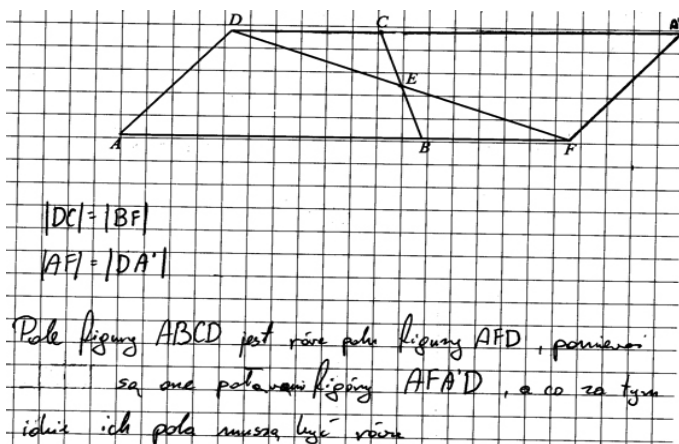 D C A'
E
A B F
|DC|=|BF|
|AF|=|DA'|
Pole figury ABCD jest równe polu figury AFD, ponieważ
są one połowami figóry AFA'D, a co za tym
idzie ich pola muszą być równe